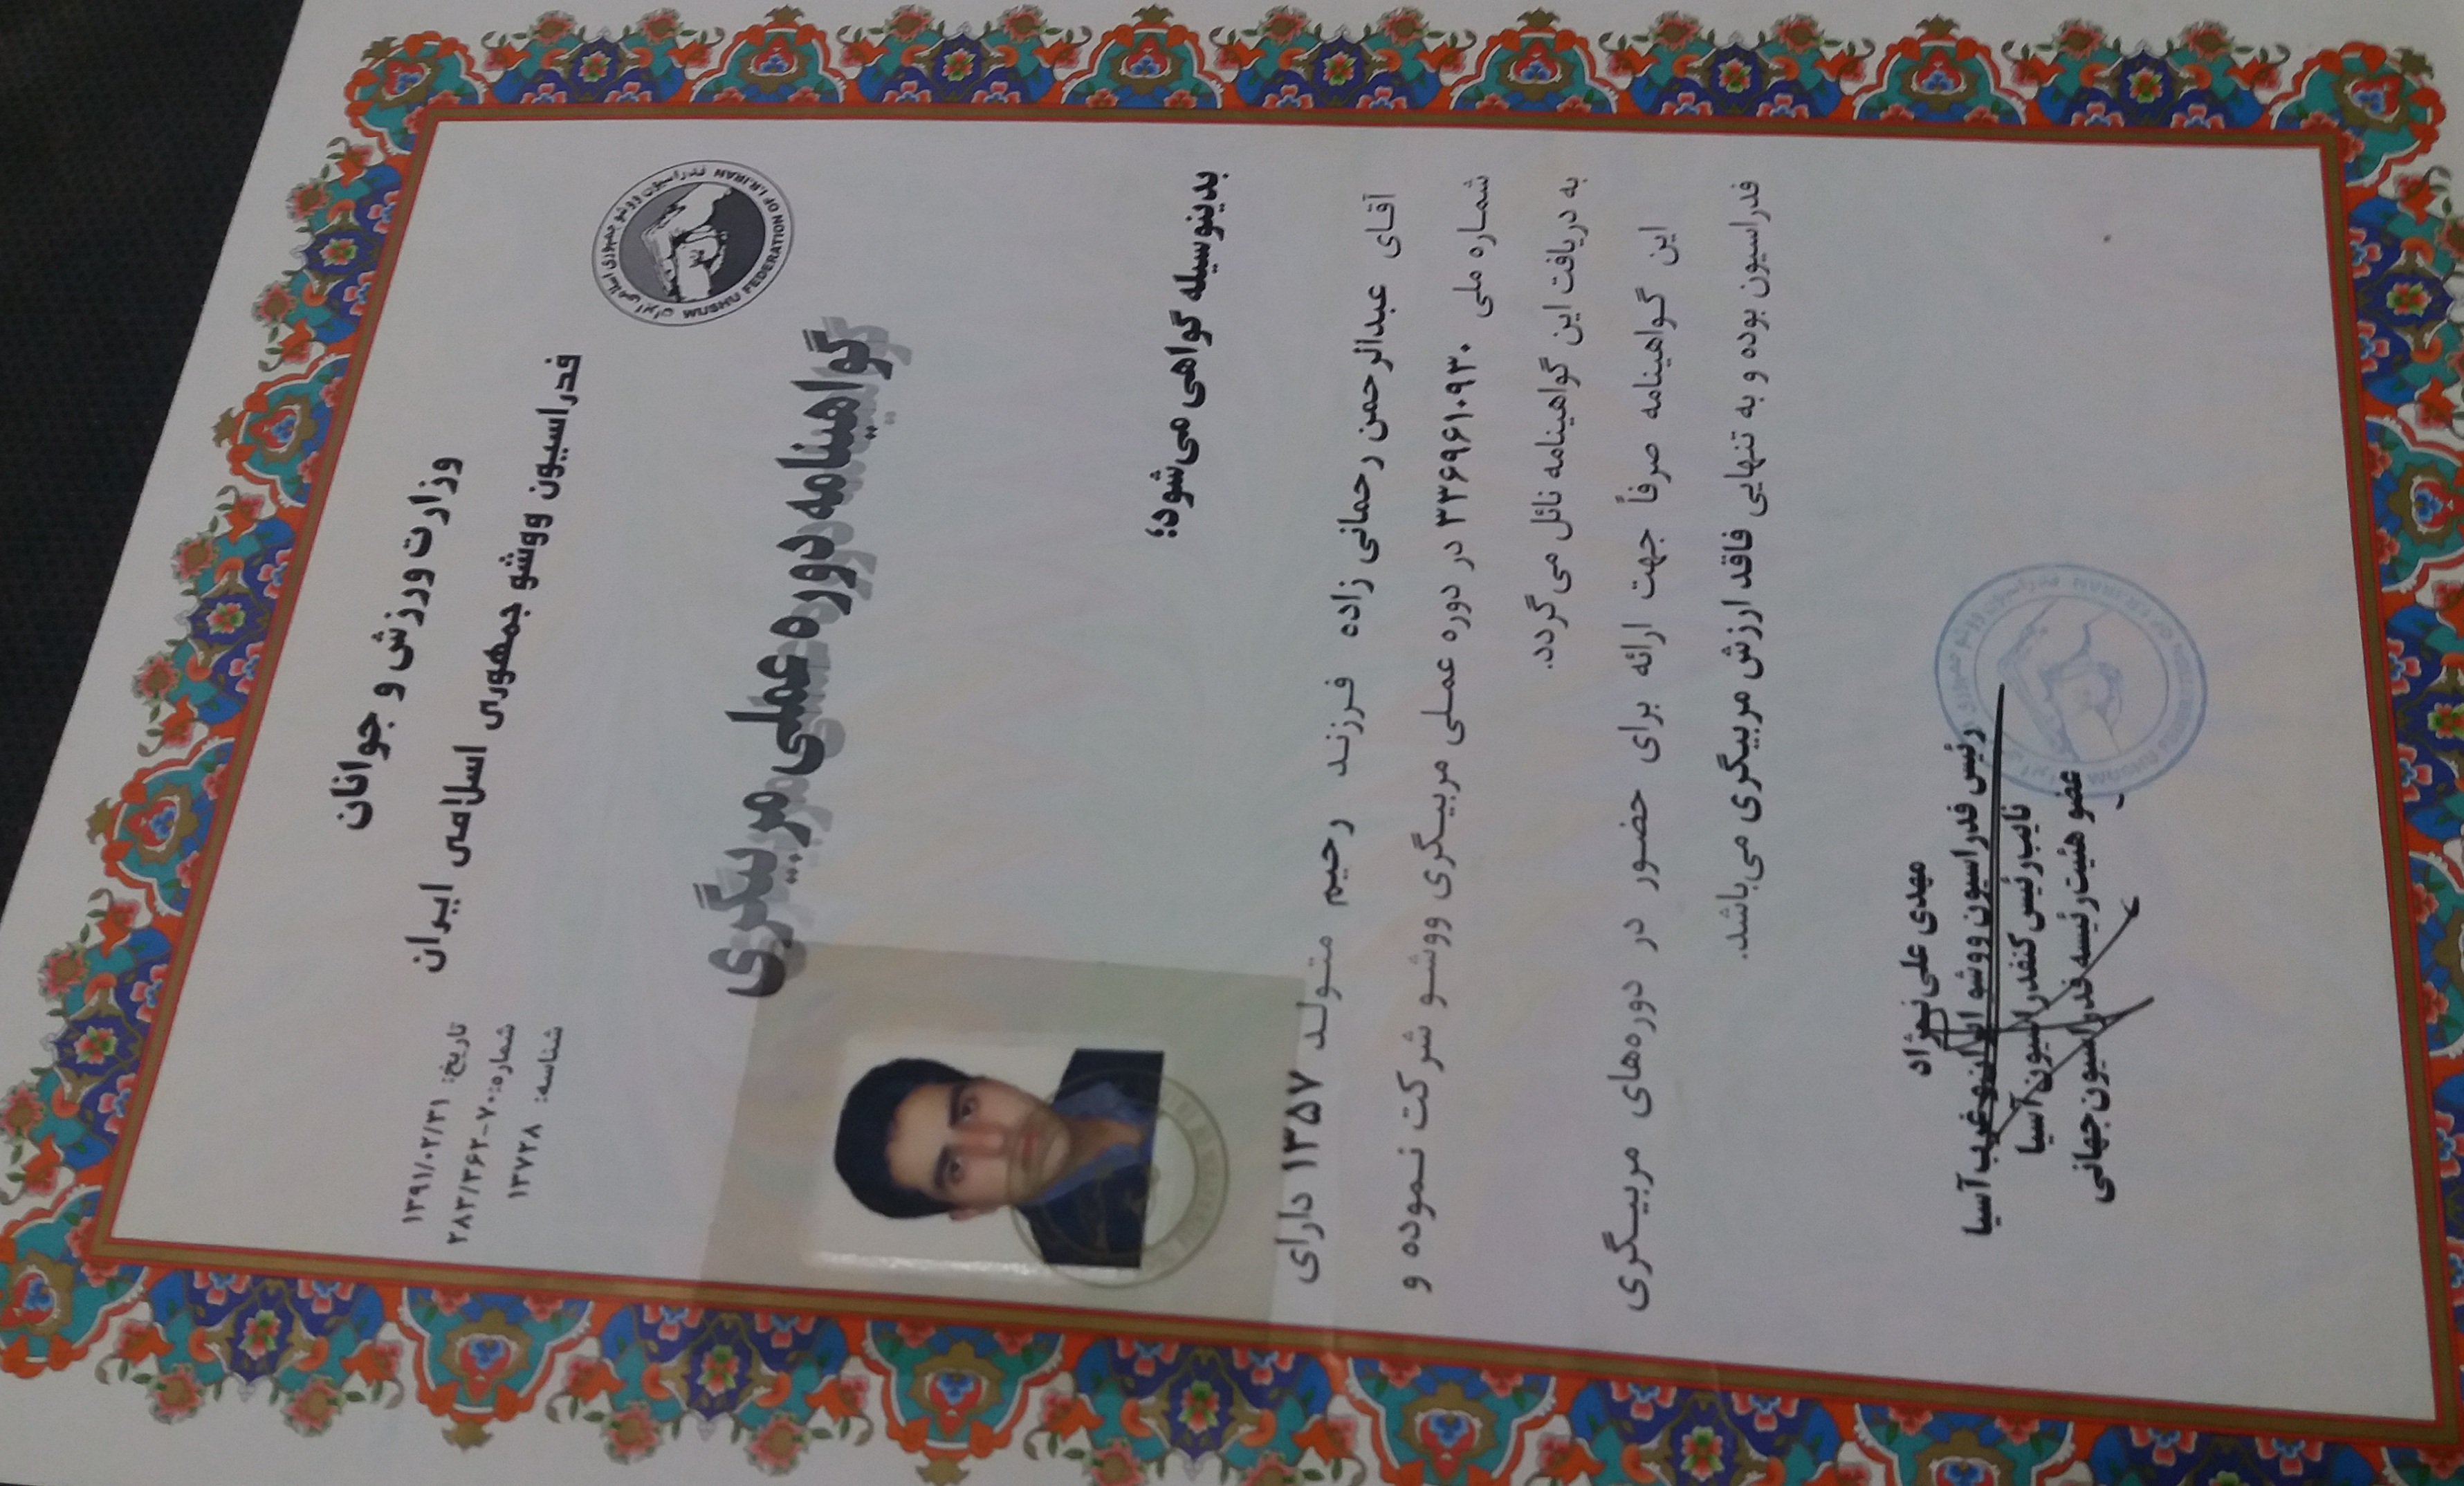 وزارت ورزش و جوانان
فدراسیون ووشو جمهوری اسلامی ایران
تاریخ: ۱۳۹۱/۰۲/۳۱
شماره: ۲۸۲/۳۶۲-۷۰
شناسه: ۱۳۷۲۸
فدراسیون ووشو جمهوری اسلامی ایران
WUSHU FEDERATION OF I.R.IRAN
گواهینامه دوره عملی مربیگری
بدینوسیله گواهی می‌شود؛
آقای عبدالرحمن رحمانی زاده فرزند رحیم متولد ۱۳۵۷ دارای
شماره ملی ۳۳۶۹۶۱۰۹۳۰ در دوره عملی مربیگری ووشو شرکت نموده و
به دریافت این گواهینامه نائل می‌گردد.
این گواهینامه صرفاً جهت ارائه برای حضور در دوره‌های مربیگری
فدراسیون بوده و به تنهایی فاقد ارزش مربیگری می‌باشد.
مهدی علی نژاد
رئیس فدراسیون ووشو ایران و غرب آسیا
نایب رئیس کنفدراسیون آسیا
عضو هیئت رئیسه فدراسیون جهانی